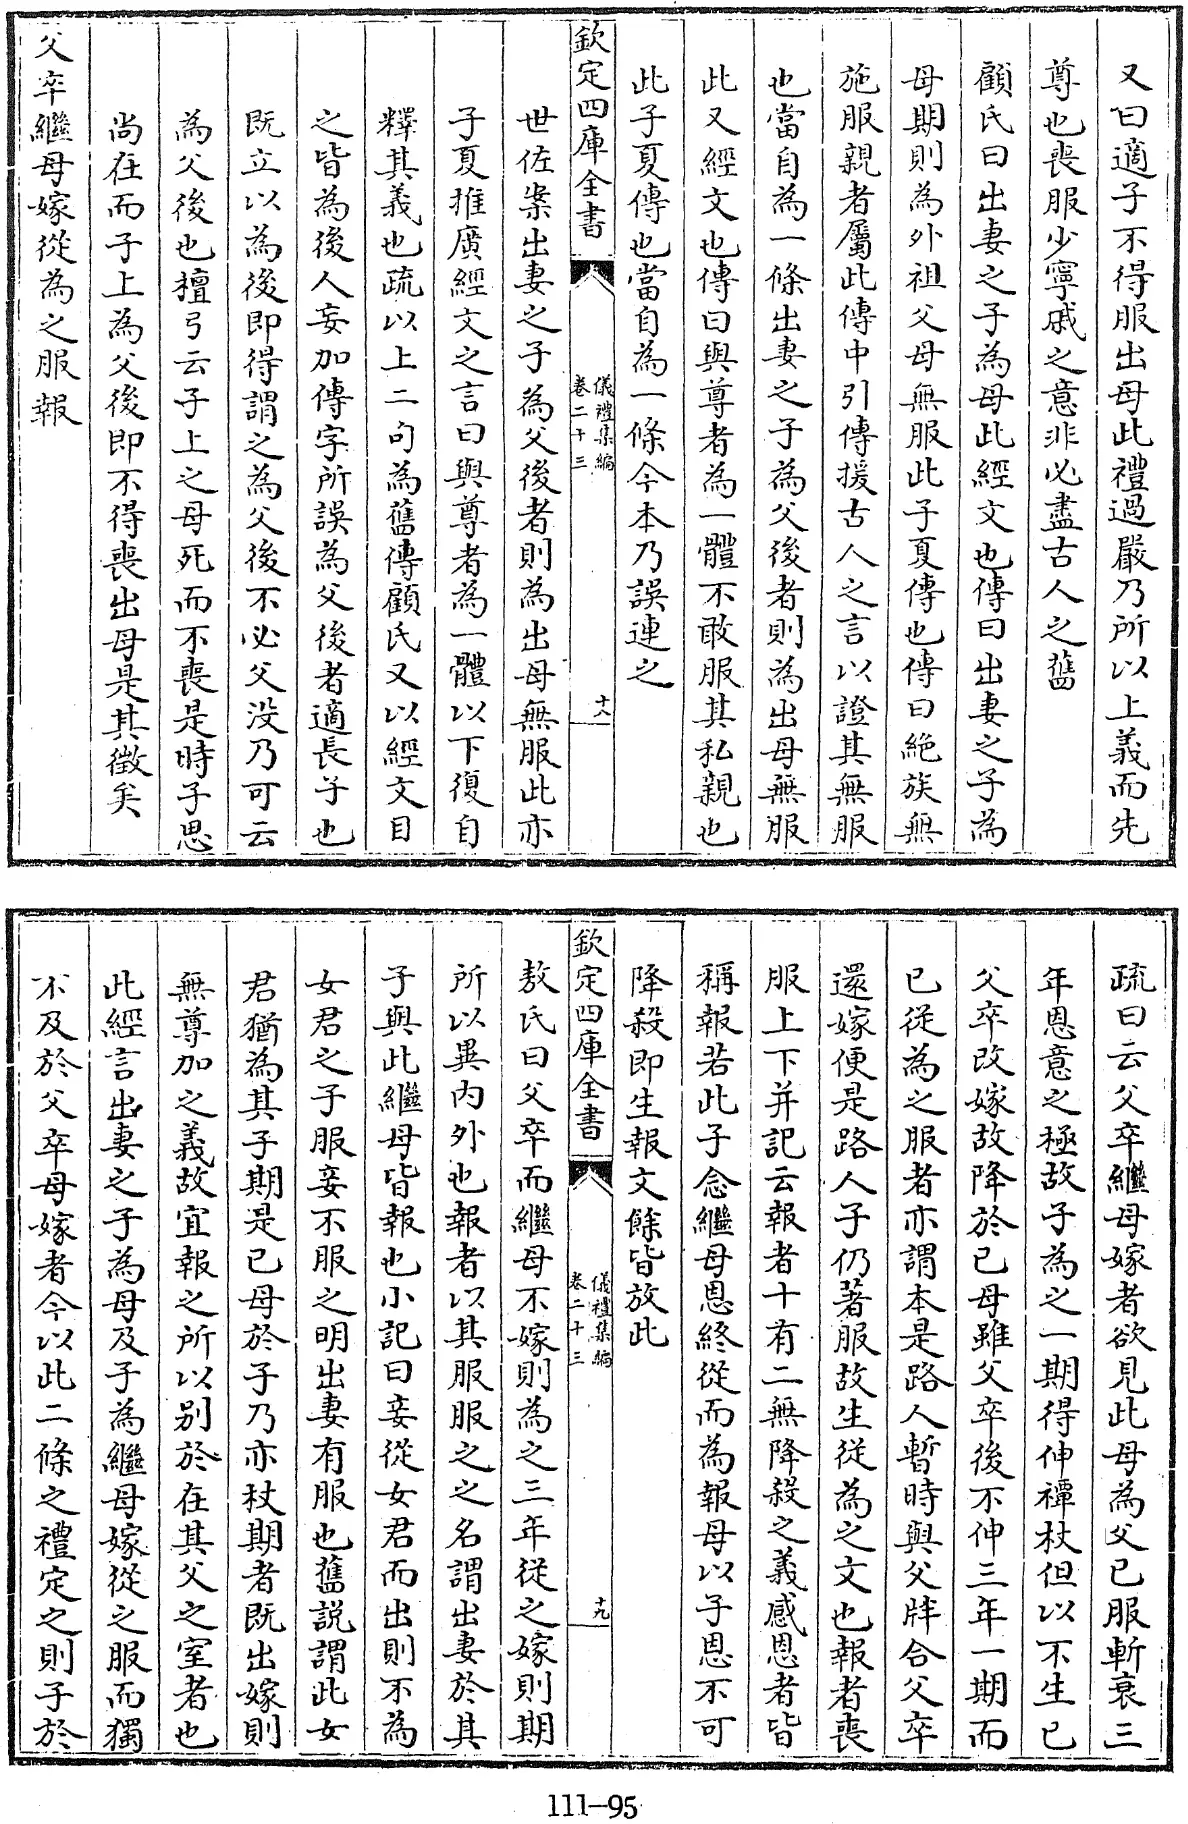 又曰適子不得服出母此禮過嚴乃所以上義而先
尊也喪服少寧戚之意非必盡古人之舊
顧氏曰出妻之子為母此經文也傳曰出妻之子為
母期則為外祖父母無服此子夏傳也傳曰絶族無
施服親者屬此傳中引傳援古人之言以證其無服
也當自為一條出妻之子為父後者則為出母無服
此又經文也傳曰與尊者為一體不敢服其私親也
此子夏傳也當自為一條今本乃誤連之
欽定四庫全書
儀禮集編
卷二十三
十八
世佐案出妻之子為父後者則為出母無服此亦
子夏推廣經文之言曰與尊者為一體以下復自
釋其義也疏以上二句為舊傳顧氏又以經文目
之皆為後人妄加傳字所誤為父後者適長子也
既立以為後即得謂之為父後不必父没乃可云
為父後也檀弓云子上之母死而不喪是時子思
尚在而子上為父後即不得喪出母是其徵矣
父卒繼母嫁從為之服報
疏曰云父卒繼母嫁者欲見此母為父已服斬衰三
年恩意之極故子為之一期得伸禫杖但以不生已
父卒改嫁故降於已母雖父卒後不伸三年一期而
已從為之服者亦謂本是路人暫時與父牉合父卒
還嫁便是路人子仍著服故生從為之文也報者喪
服上下并記云報者十有二無降殺之義感恩者皆
稱報若此子念繼母恩終從而為報母以子恩不可
降殺即生報文餘皆放此
欽定四庫全書
儀禮集編
卷二十三
十九
敖氏曰父卒而繼母不嫁則為之三年從之嫁則期
所以異内外也報者以其服服之之名謂出妻於其
子與此繼母皆報也小記曰妾從女君而出則不為
女君之子服妾不服之明出妻有服也舊説謂此女
君猶為其子期是已母於子乃亦杖期者既出嫁則
無尊加之義故宜報之所以别於在其父之室者也
此經言出妻之子為母及子為繼母嫁從之服而獨
不及於父卒母嫁者今以此二條之禮定之則子於
111-95